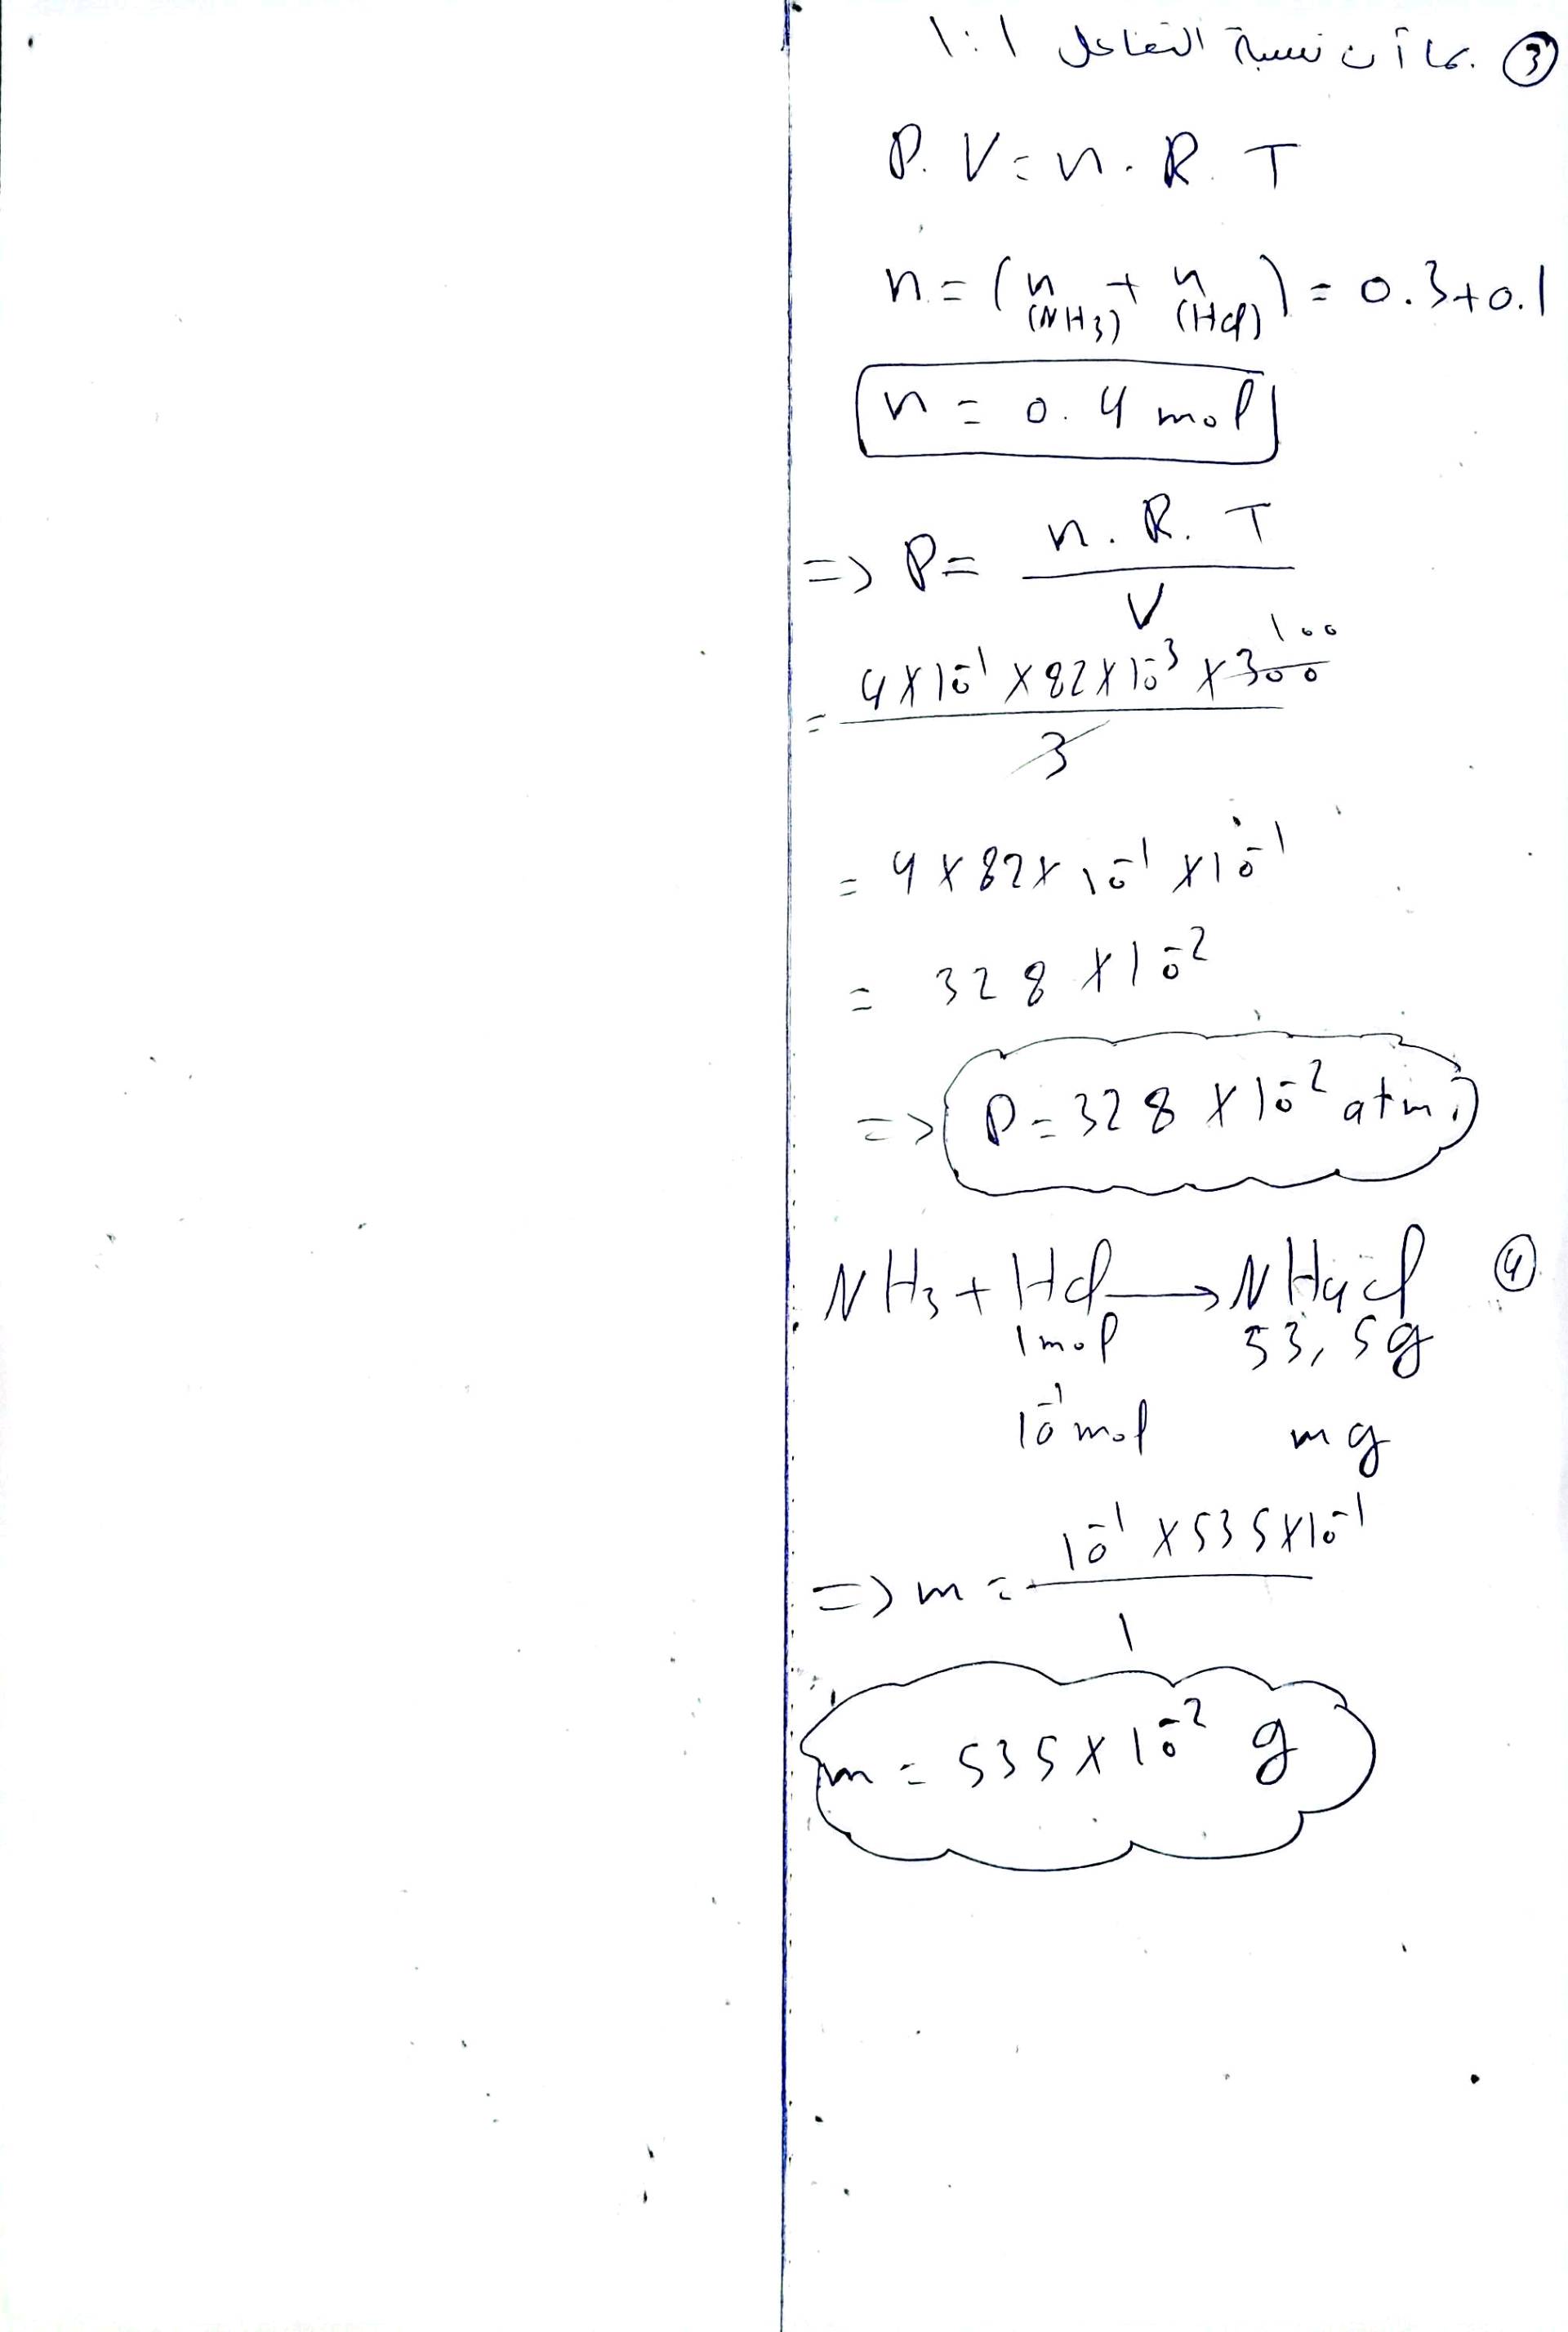 ③ بما أن نسبة التفاعل 1:1
P. V = n. R. T
n = (n(NH3) + n(HCl)) = 0.3+0.1
n = 0.4 mol
=> P = n. R. T / V
= 4×10^-1 × 82×10^-3 × 300 100 / 3
= 4×82×10^-1 ×10^-1
= 328 ×10^-2
=> P = 328 ×10^-2 atm
④ NH3 + HCl → NH4Cl
1mol 53,5g
10^-1 mol m g
=> m = 10^-1 ×535×10^-1 / 1
m = 535×10^-2 g